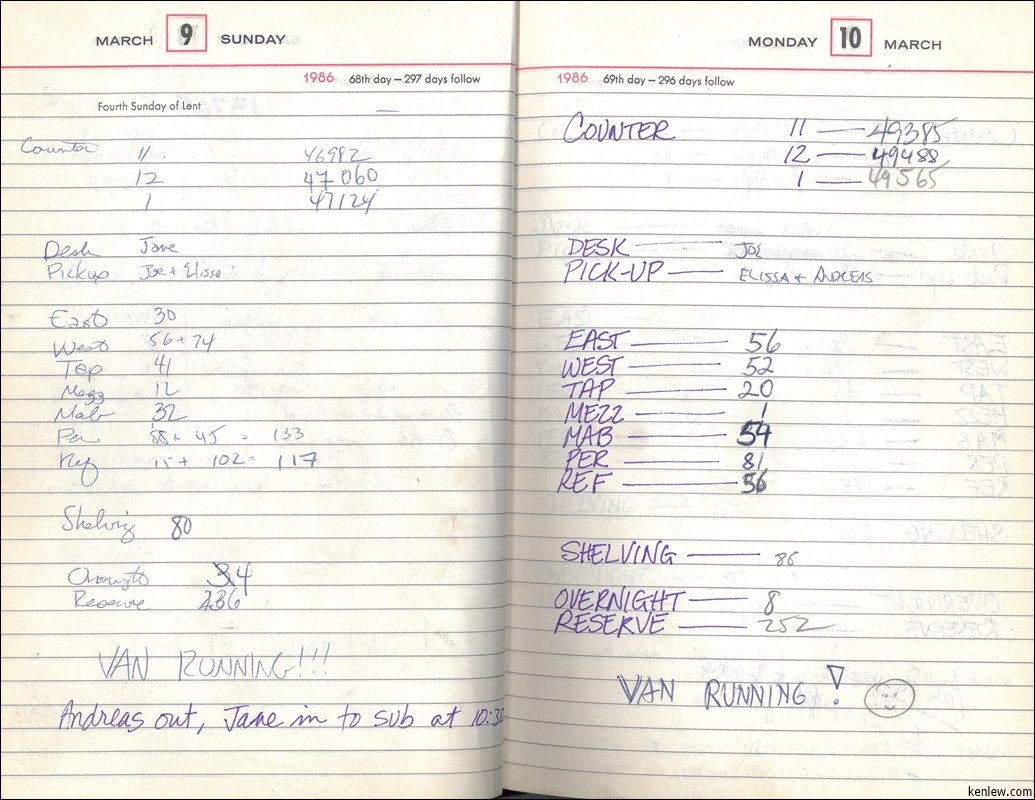 MARCH 9 SUNDAY
1986 68th day — 297 days follow
Fourth Sunday of Lent
Counter 11 46982
12 47060
1 47124
Desk Jane
Pickup Joe + Elissa
East 30
West 56 + 74
Tap 41
Mezz 12
Mab 32
Per 88 + 45 = 133
Ref 15 + 102 = 117
Shelving 80
34
Reserve 236
VAN RUNNING!!!
Andreas out, Jane in to sub at 10:30
MONDAY 10 MARCH
1986 69th day — 296 days follow
COUNTER 11 — 49385
12 — 49488
1 — 49565
DESK — JOE
PICK-UP — ELISSA + ANDREAS
EAST — 56
WEST — 52
TAP — 20
MEZZ — 1
MAB — 54
PER — 81
REF — 56
SHELVING — 86
OVERNIGHT — 8
RESERVE — 252
VAN RUNNING!
kenlew.com